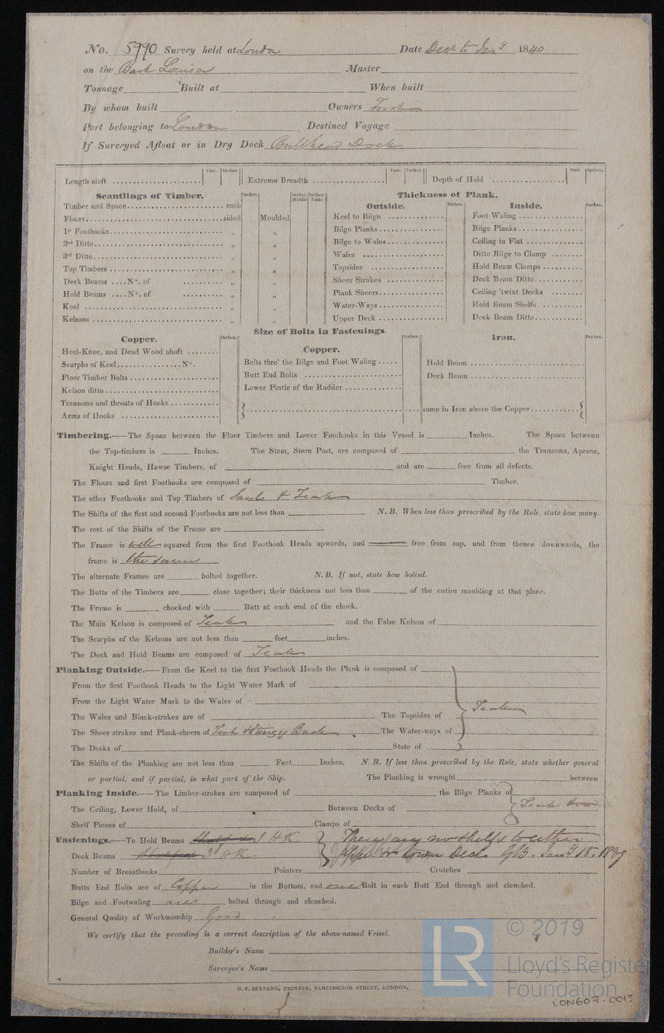 No. 5990 Survey held at London Date Decr to Jany 1840
on the Bark Louisa Master
Tonnage Built at When built
By whom built Owners
Port belonging to London Destined Voyage
If Surveyed Afloat or in Dry Dock Bulkhead Dock
Length aloft Feet. Inches. Extreme Breadth Feet. Inches. Depth of Hold Feet. Inches.
Scantlings of Timber. Thickness of Plank.
Outside. Inside.
Timber and Space each Keel to Bilge Foot Waling
Floors sided Moulded Bilge Planks Bilge Planks
1st Foothooks „ „ Bilge to Wales Ceiling in Flat
2nd Ditto „ „ Wales Ditto Bilge to Clamp
3rd Ditto „ „ Topsides Hold Beam Clamps
Top Timbers „ „ Sheer Strakes Deck Beam Ditto
Deck Beams No. of „ „ Plank Sheers Ceiling 'twixt Decks
Hold Beams No. of „ „ Water-Ways Hold Beam Shelfs
Keel „ „ Upper Deck Deck Beam Ditto
Kelsons „ „
Size of Bolts in Fastenings.
Copper. Inches. Copper. Inches. Iron. Inches.
Heel-Knee, and Dead Wood abaft Bolts thro' the Bilge and Foot Waling Hold Beam
Scarphs of Keel No. Butt End Bolts Deck Beam
Floor Timber Bolts Lower Pintle of the Rudder
Kelson ditto
Transoms and throats of Hooks same in Iron above the Copper
Arms of Hooks
Timbering.—The Space between the Floor Timbers and Lower Foothooks in this Vessel is Inches. The Space between
the Top-timbers is Inches. The Stem, Stern Post, are composed of the Transoms, Aprons,
Knight Heads, Hawse Timbers, of and are free from all defects.
The Floors and first Foothooks are composed of Timber.
The other Foothooks and Top Timbers of Saul & Teak
The Shifts of the first and second Foothooks are not less than N.B. When less than prescribed by the Rule, state how many.
The rest of the Shifts of the Frame are
The Frame is well squared from the first Foothook Heads upwards, and free from sap, and from thence downwards, the
frame is the same
The alternate Frames are bolted together. N.B. If not, state how bolted.
The Butts of the Timbers are close together; their thickness not less than of the entire moulding at that place.
The Frame is chocked with Butt at each end of the chock.
The Main Kelson is composed of Teak and the False Kelson of
The Scarphs of the Kelsons are not less than feet inches.
The Deck and Hold Beams are composed of Teak
Planking Outside.—From the Keel to the first Foothook Heads the Plank is composed of
From the first Foothook Heads to the Light Water Mark of
From the Light Water Mark to the Wales of
The Wales and Black-strakes are of The Topsides of Teak
The Sheer-strakes and Plank-sheers of Teak The Water-ways of
The Decks of State of
The Shifts of the Planking are not less than Feet Inches. N.B. If less than prescribed by the Rule, state whether general
or partial, and if partial, in what part of the Ship. The Planking is wrought between
Planking Inside.—The Limber-strakes are composed of the Bilge Planks of
The Ceiling, Lower Hold, of Between Decks of Teak
Shelf Pieces of Clamps of
Fastenings.—To Hold Beams I H K There are no shelfs to either
Deck Beams I H K Upper or Lower Deck GB. Jany 18. 1839
Number of Breasthooks Pointers Crutches
Butts End Bolts are of Copper in the Bottom, and one Bolt in each Butt End through and clenched.
Bilge and Footwaling are bolted through and clenched.
General Quality of Workmanship Good
We certify that the preceding is a correct description of the above-named Vessel.
Builder's Name
Surveyor's Name
C. F. SEYFANG, PRINTER, FARRINGDON STREET, LONDON.
© 2019
LR Lloyd's Register
Foundation
LON607-0013